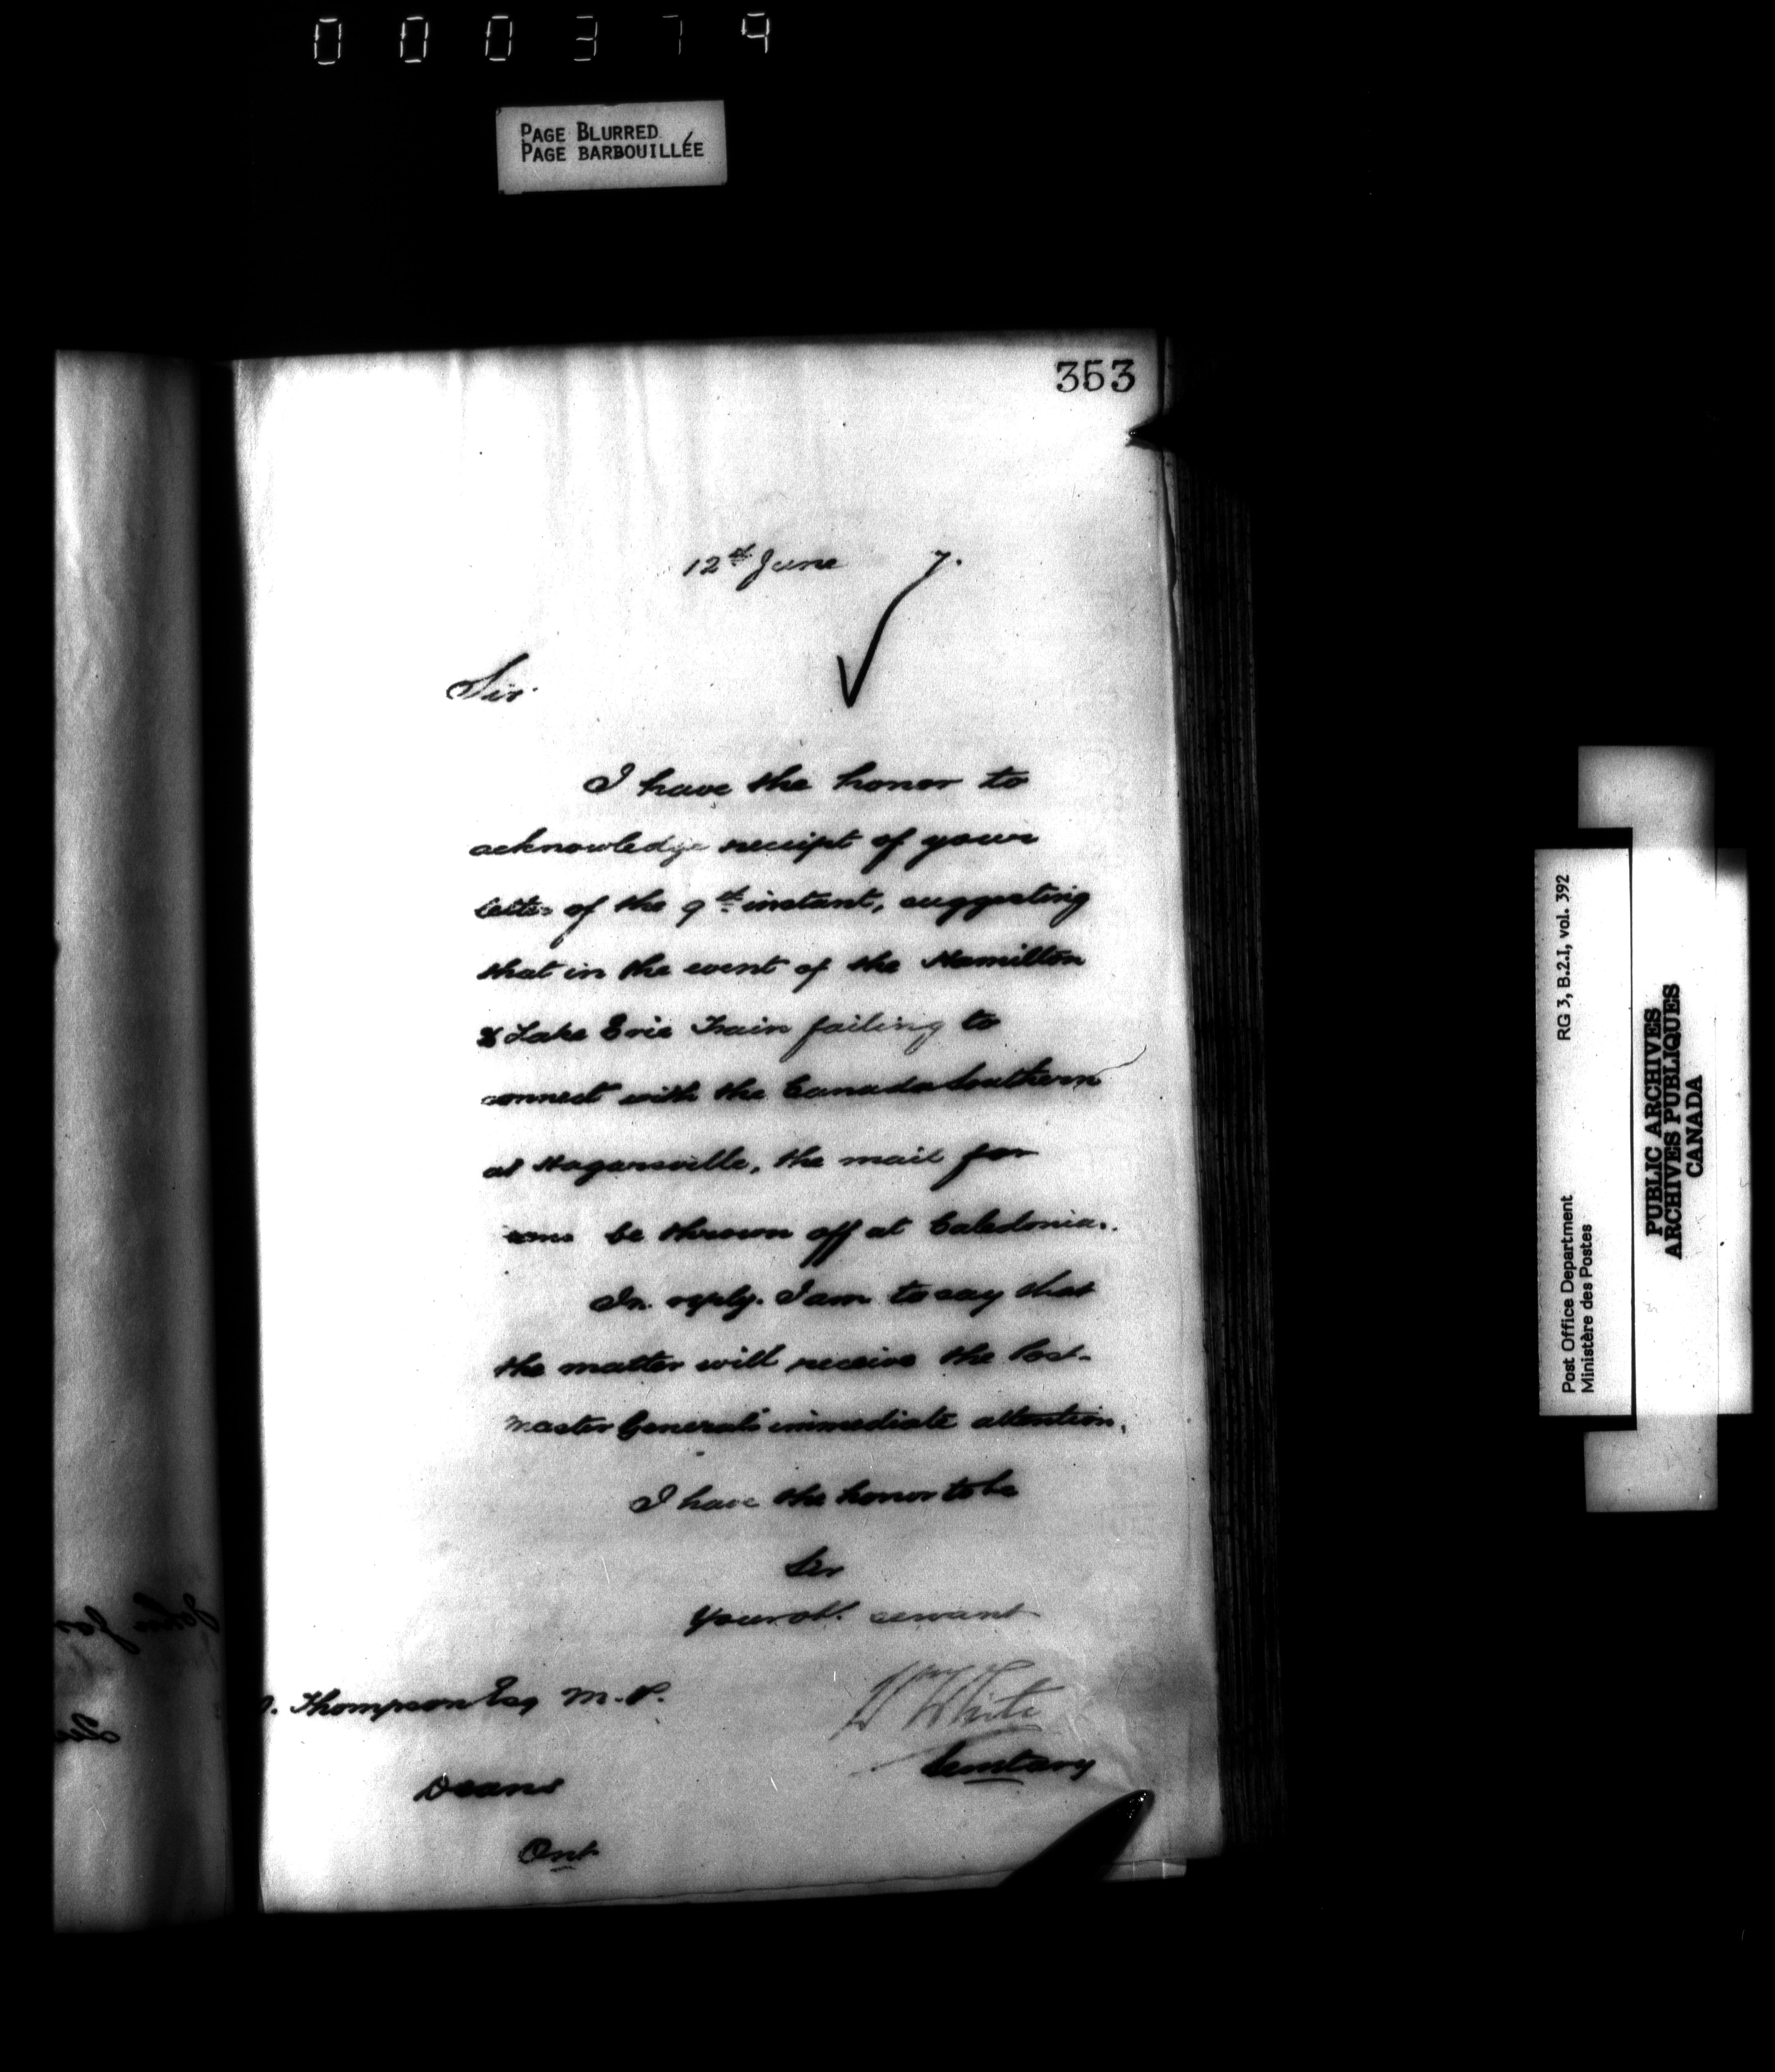 000379
PAGE BLURRED
PAGE BARBOUILLÉE
353
12th June 7.
Sir
I have the honor to
acknowledge receipt of your
letter of the 9th instant, suggesting
that in the event of the Hamilton
& Lake Erie Train failing to
connect with the Canada Southern
at Hagersville, the mail for
be thrown off at Caledonia.
In reply. I am to say that
the matter will receive the Post-
master General's immediate attention.
I have the honor to be
Sir
Your obt. servant
W White
Secretary
D. Thompson Esq M.P.
Deans
Ont
John
Post Office Department RG 3, B.2.I, vol. 392
Ministère des Postes
PUBLIC ARCHIVES
ARCHIVES PUBLIQUES
CANADA